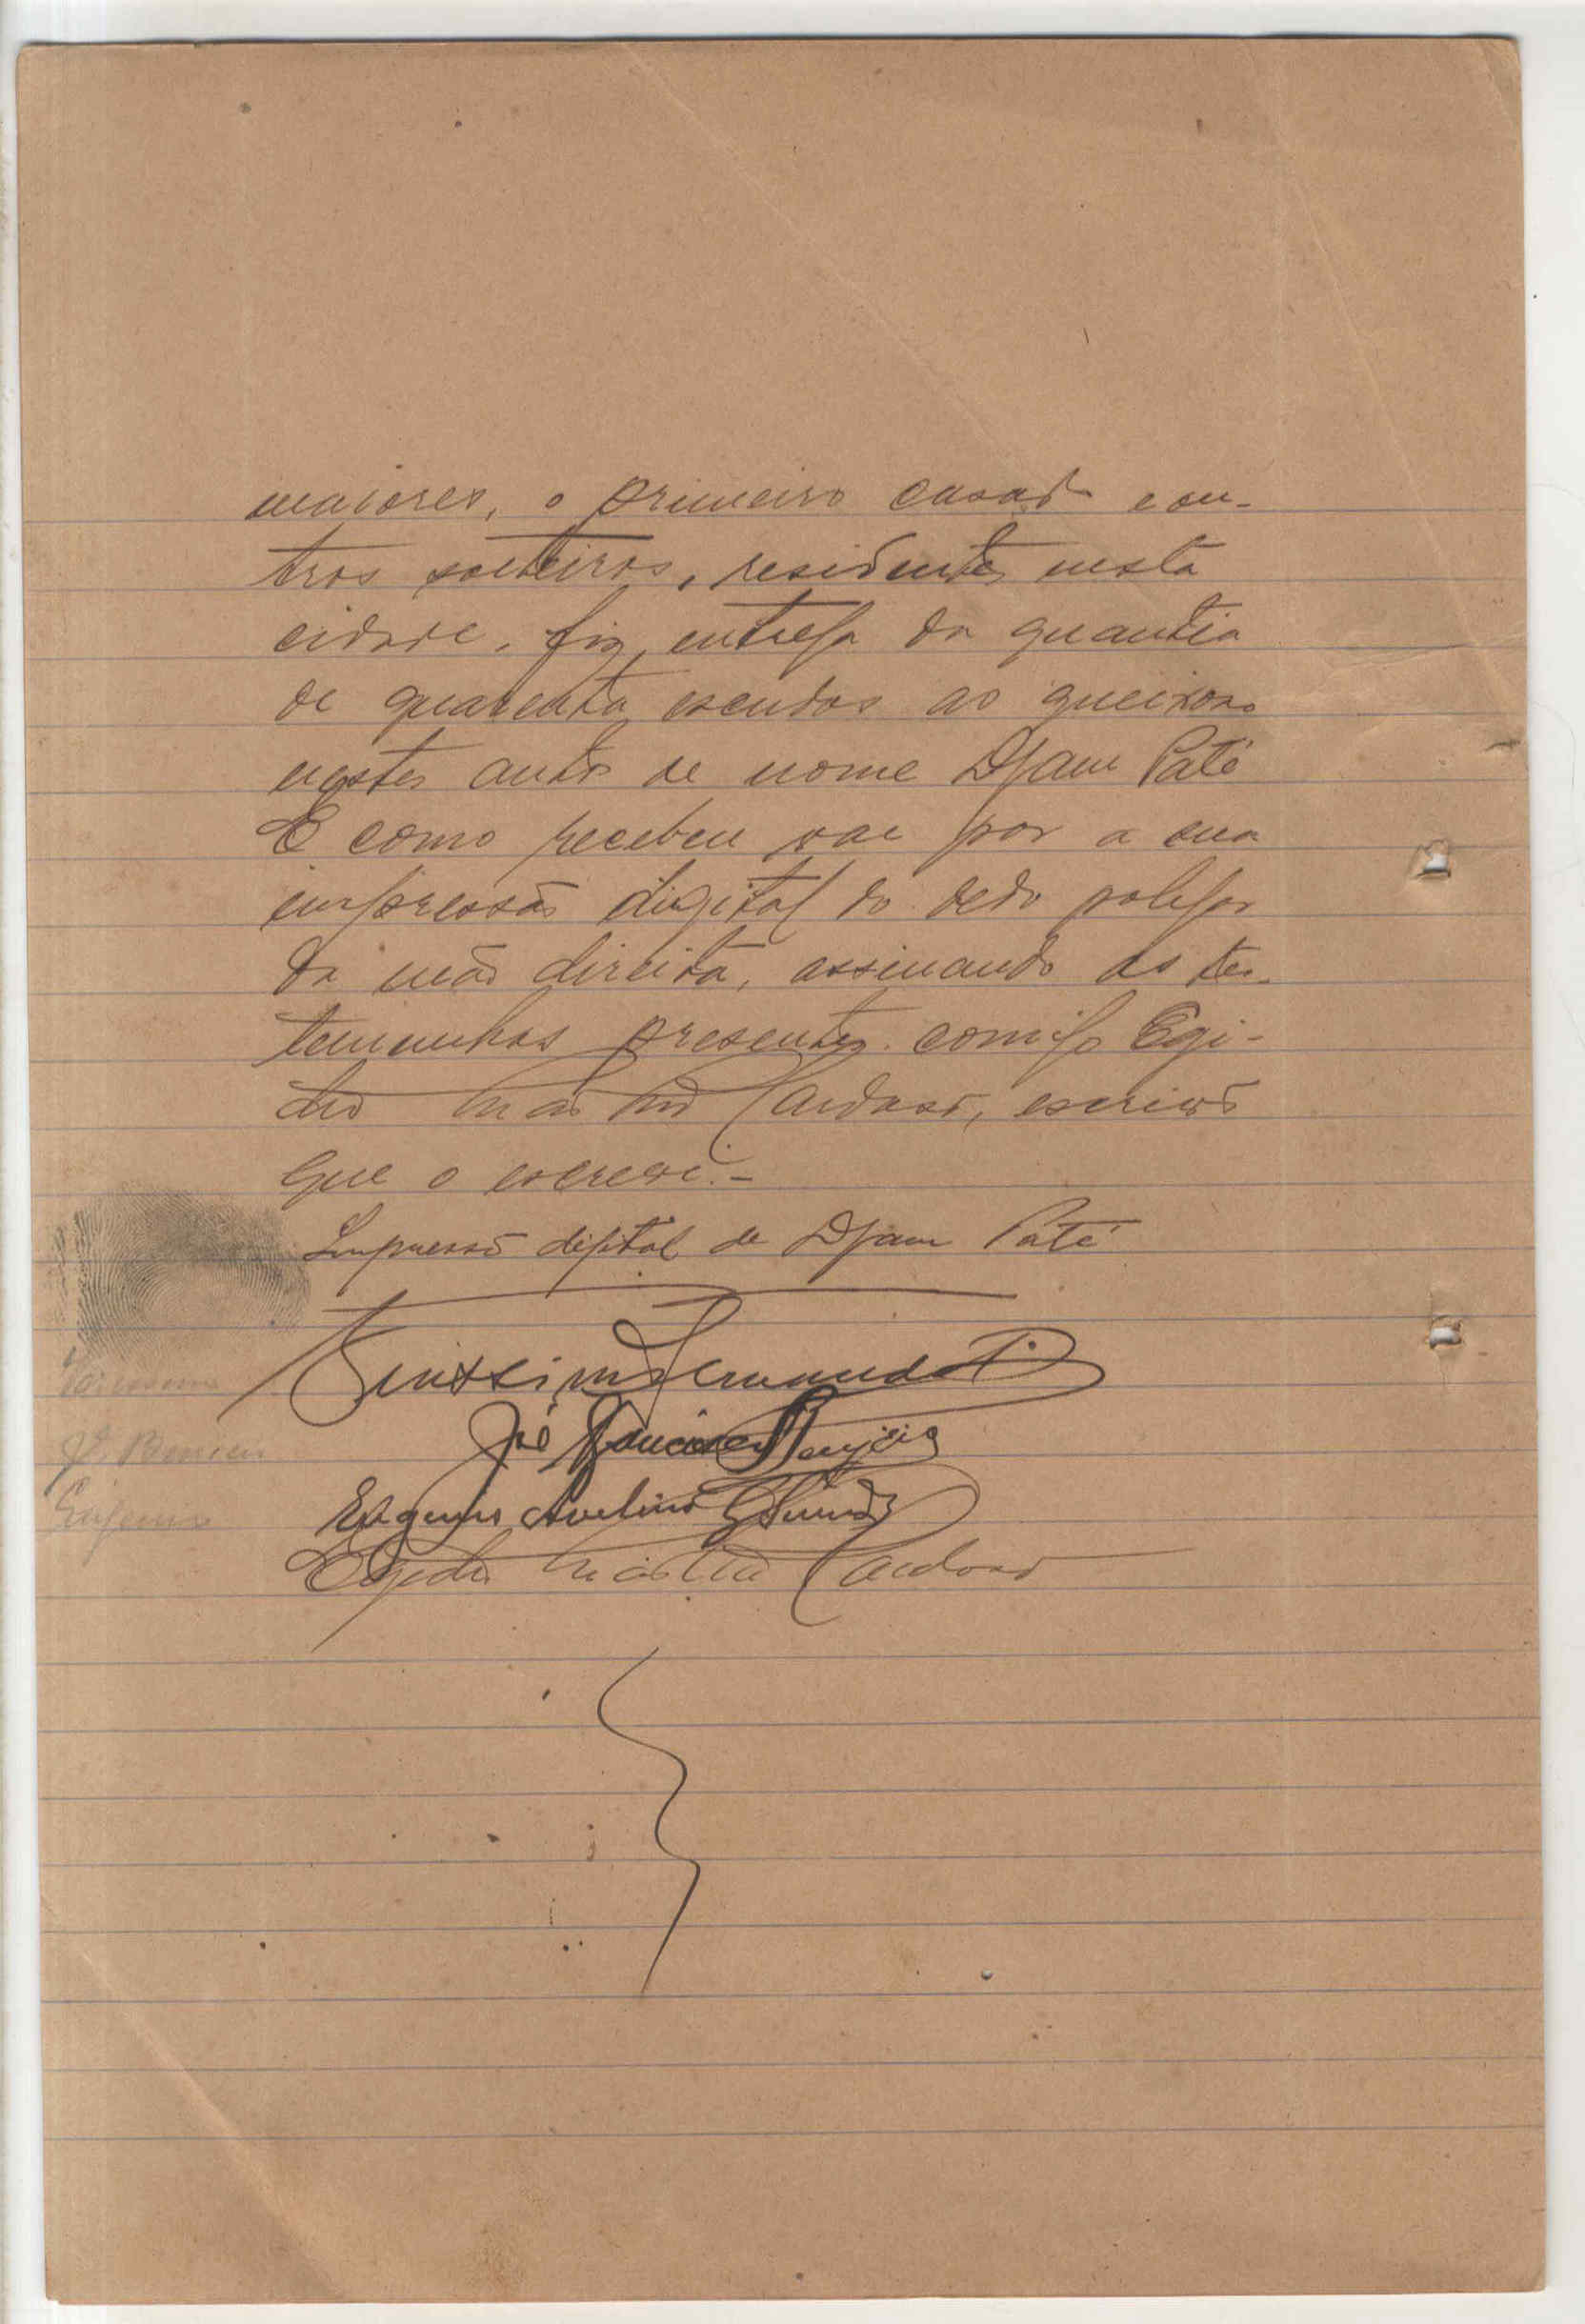 maiores, o primeiro casado e ou-
tros solteiros, residentes nesta
cidade, fiz entrega da quantia
de quarenta escudos ao queixoso
nestes autos de nome Djam Paté
E como recebeu vae por a sua
impressão digital do dedo polegar
da mão direita, assinando as tes-
temunhas presentes comigo Egi-
dio Cardoso, escrivão
que o escrevi.-
Impressão digital de Djam Paté
José
Eugenio
Eugenio Avelino
Egidio Cardoso